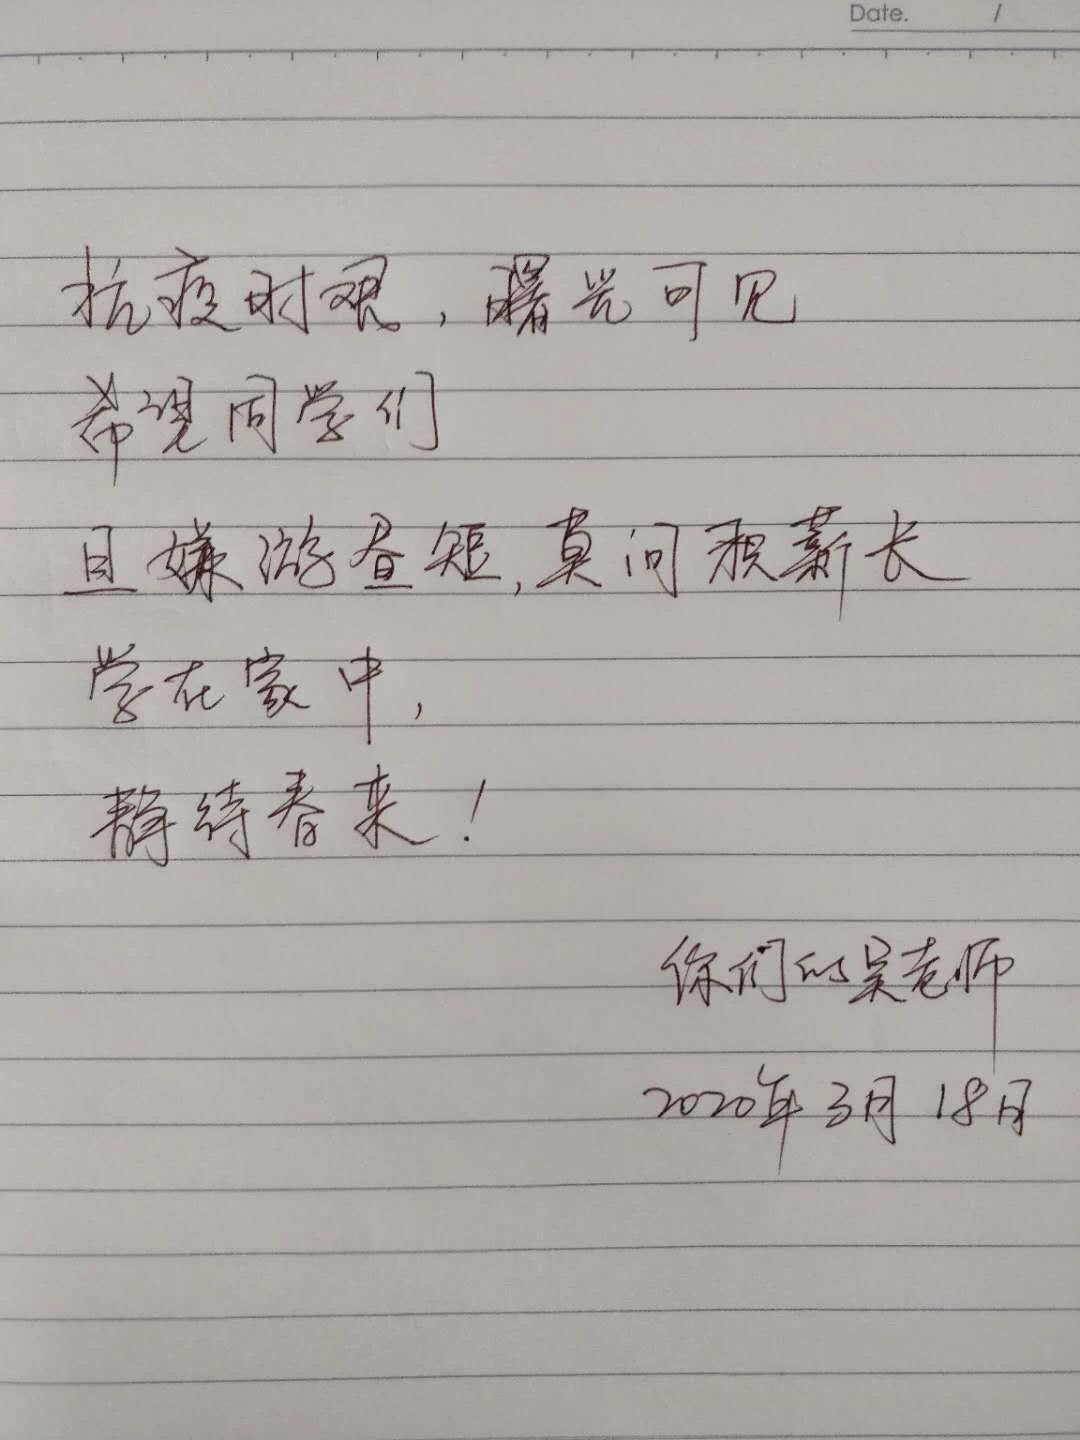 Date. /
抗疫时艰，曙光可见
希望同学们
且嫌游昼短，莫问积薪长
学在家中，
静待春来！
你们的吴老师
2020年3月18日